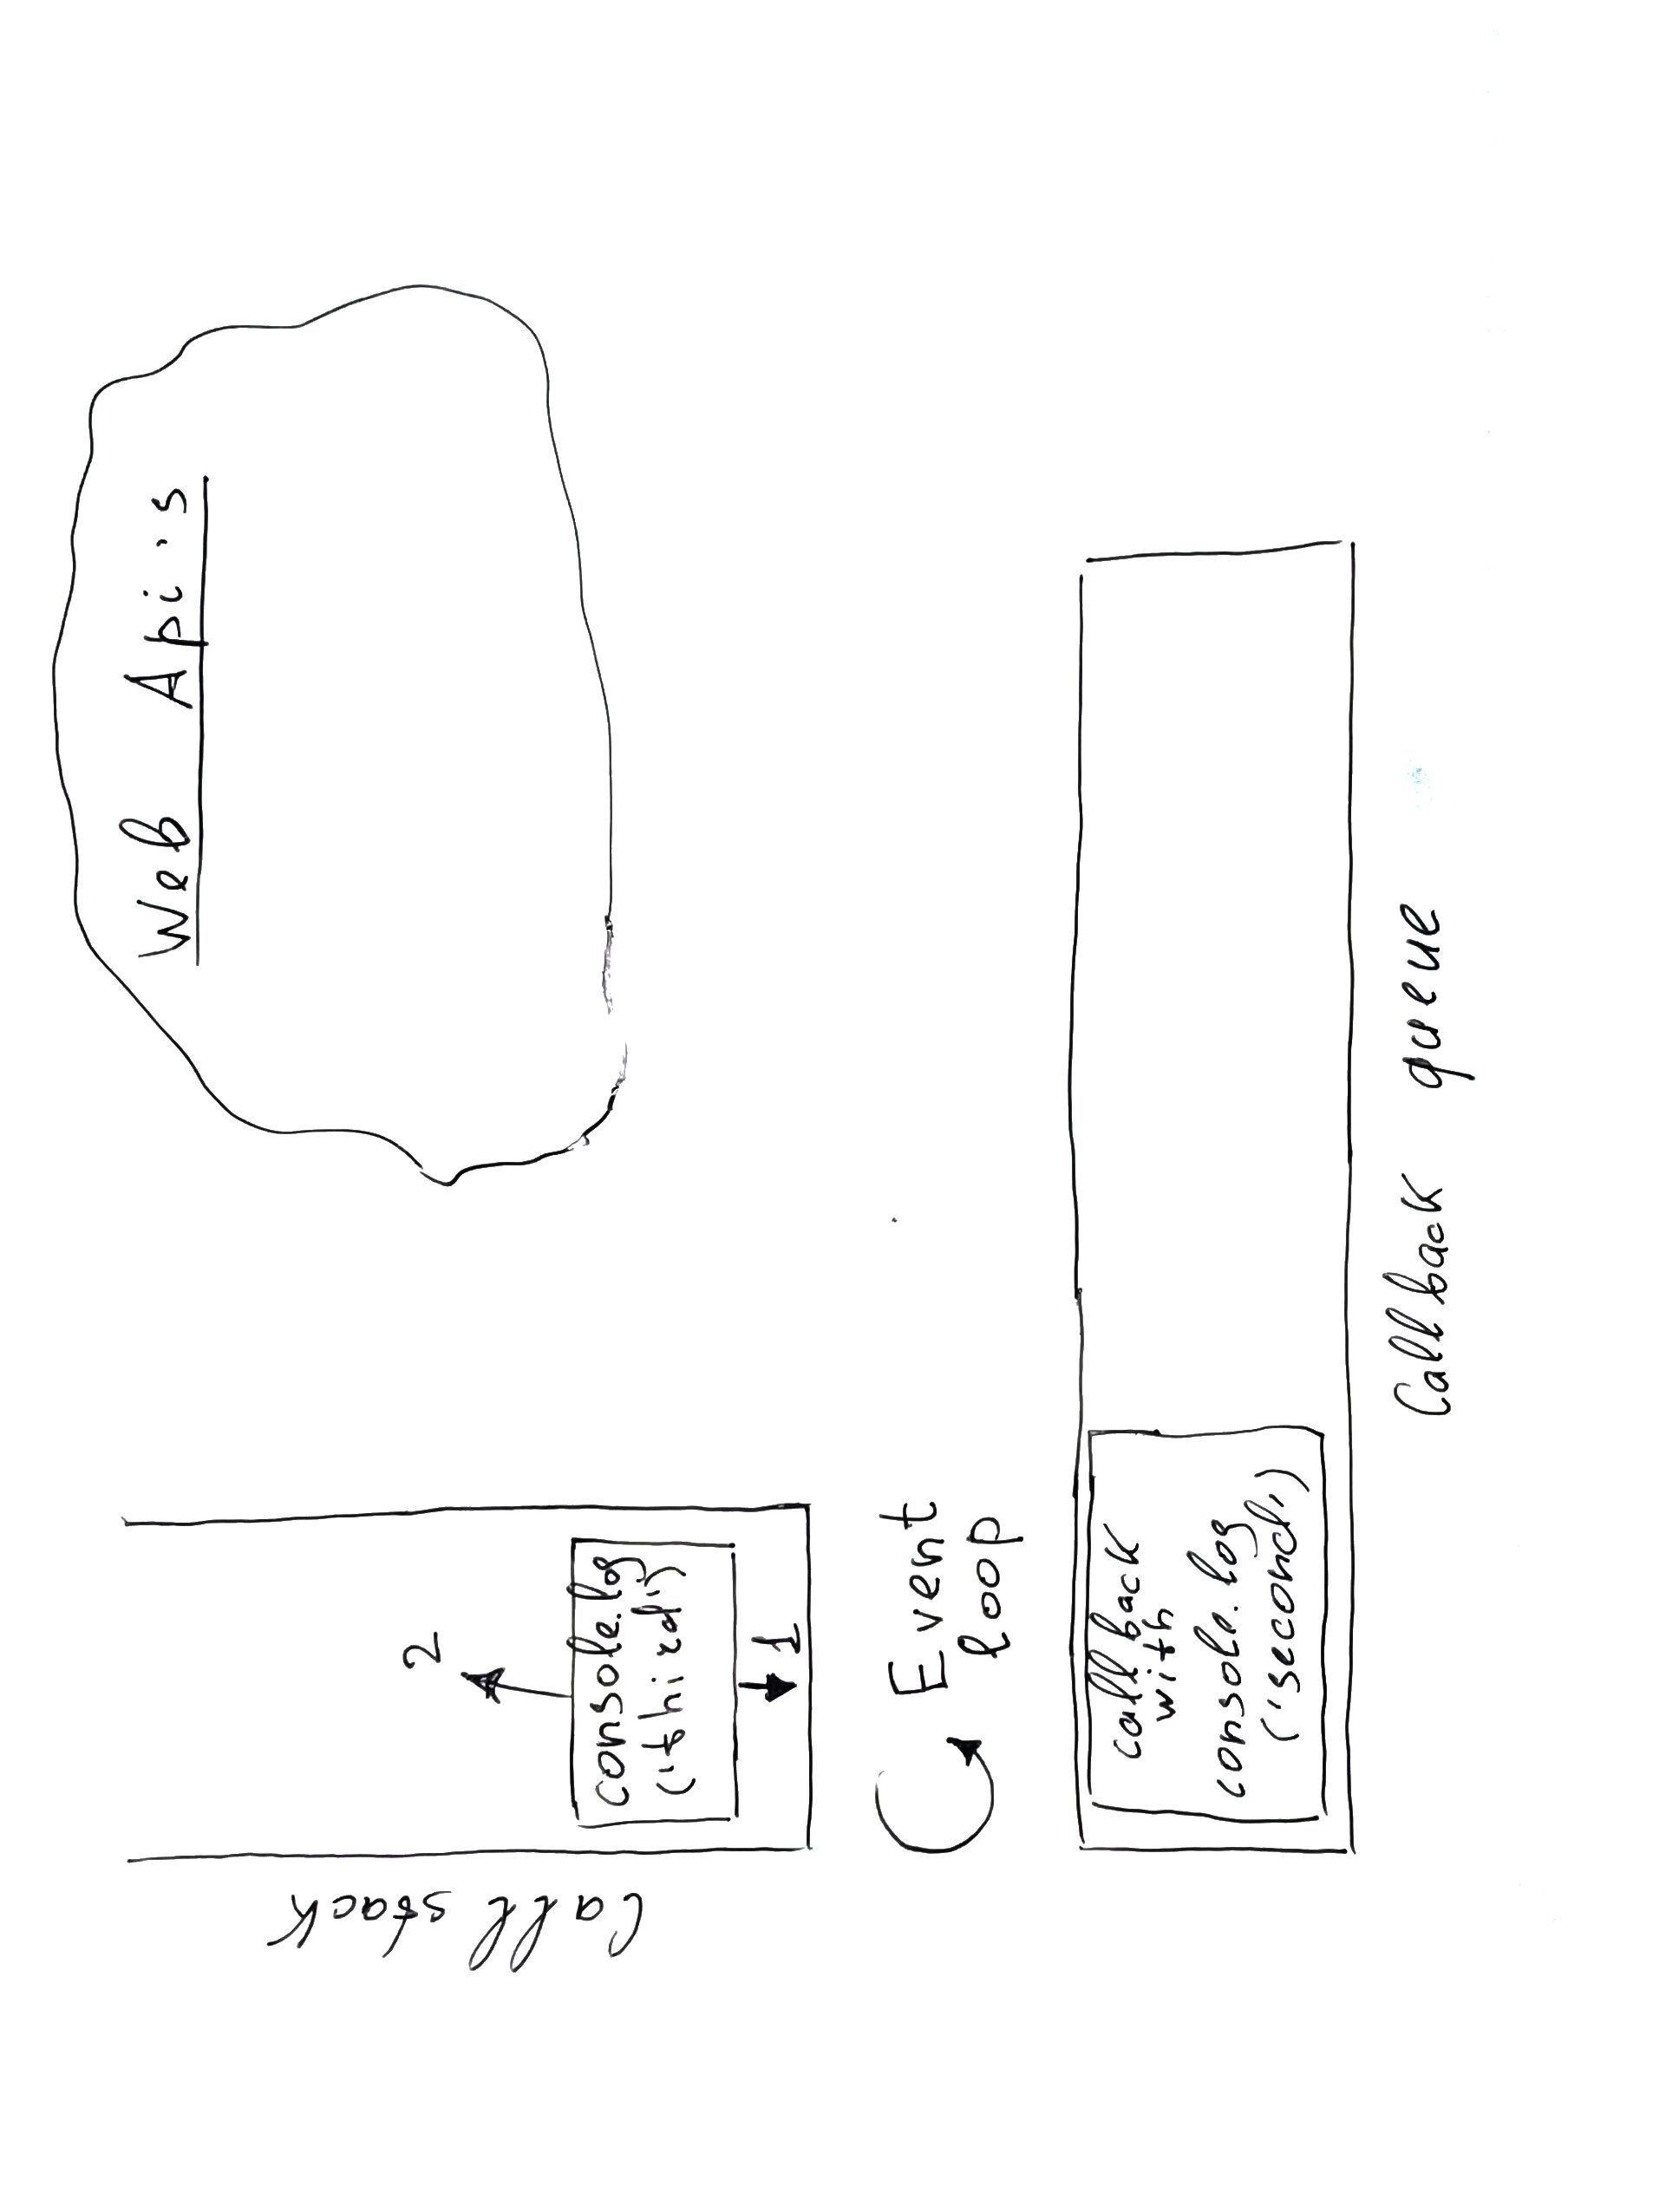 Web Api's
Call stack
2
console.log
('third')
1
Event
loop
callback
with
console.log
('second')
Callback queue